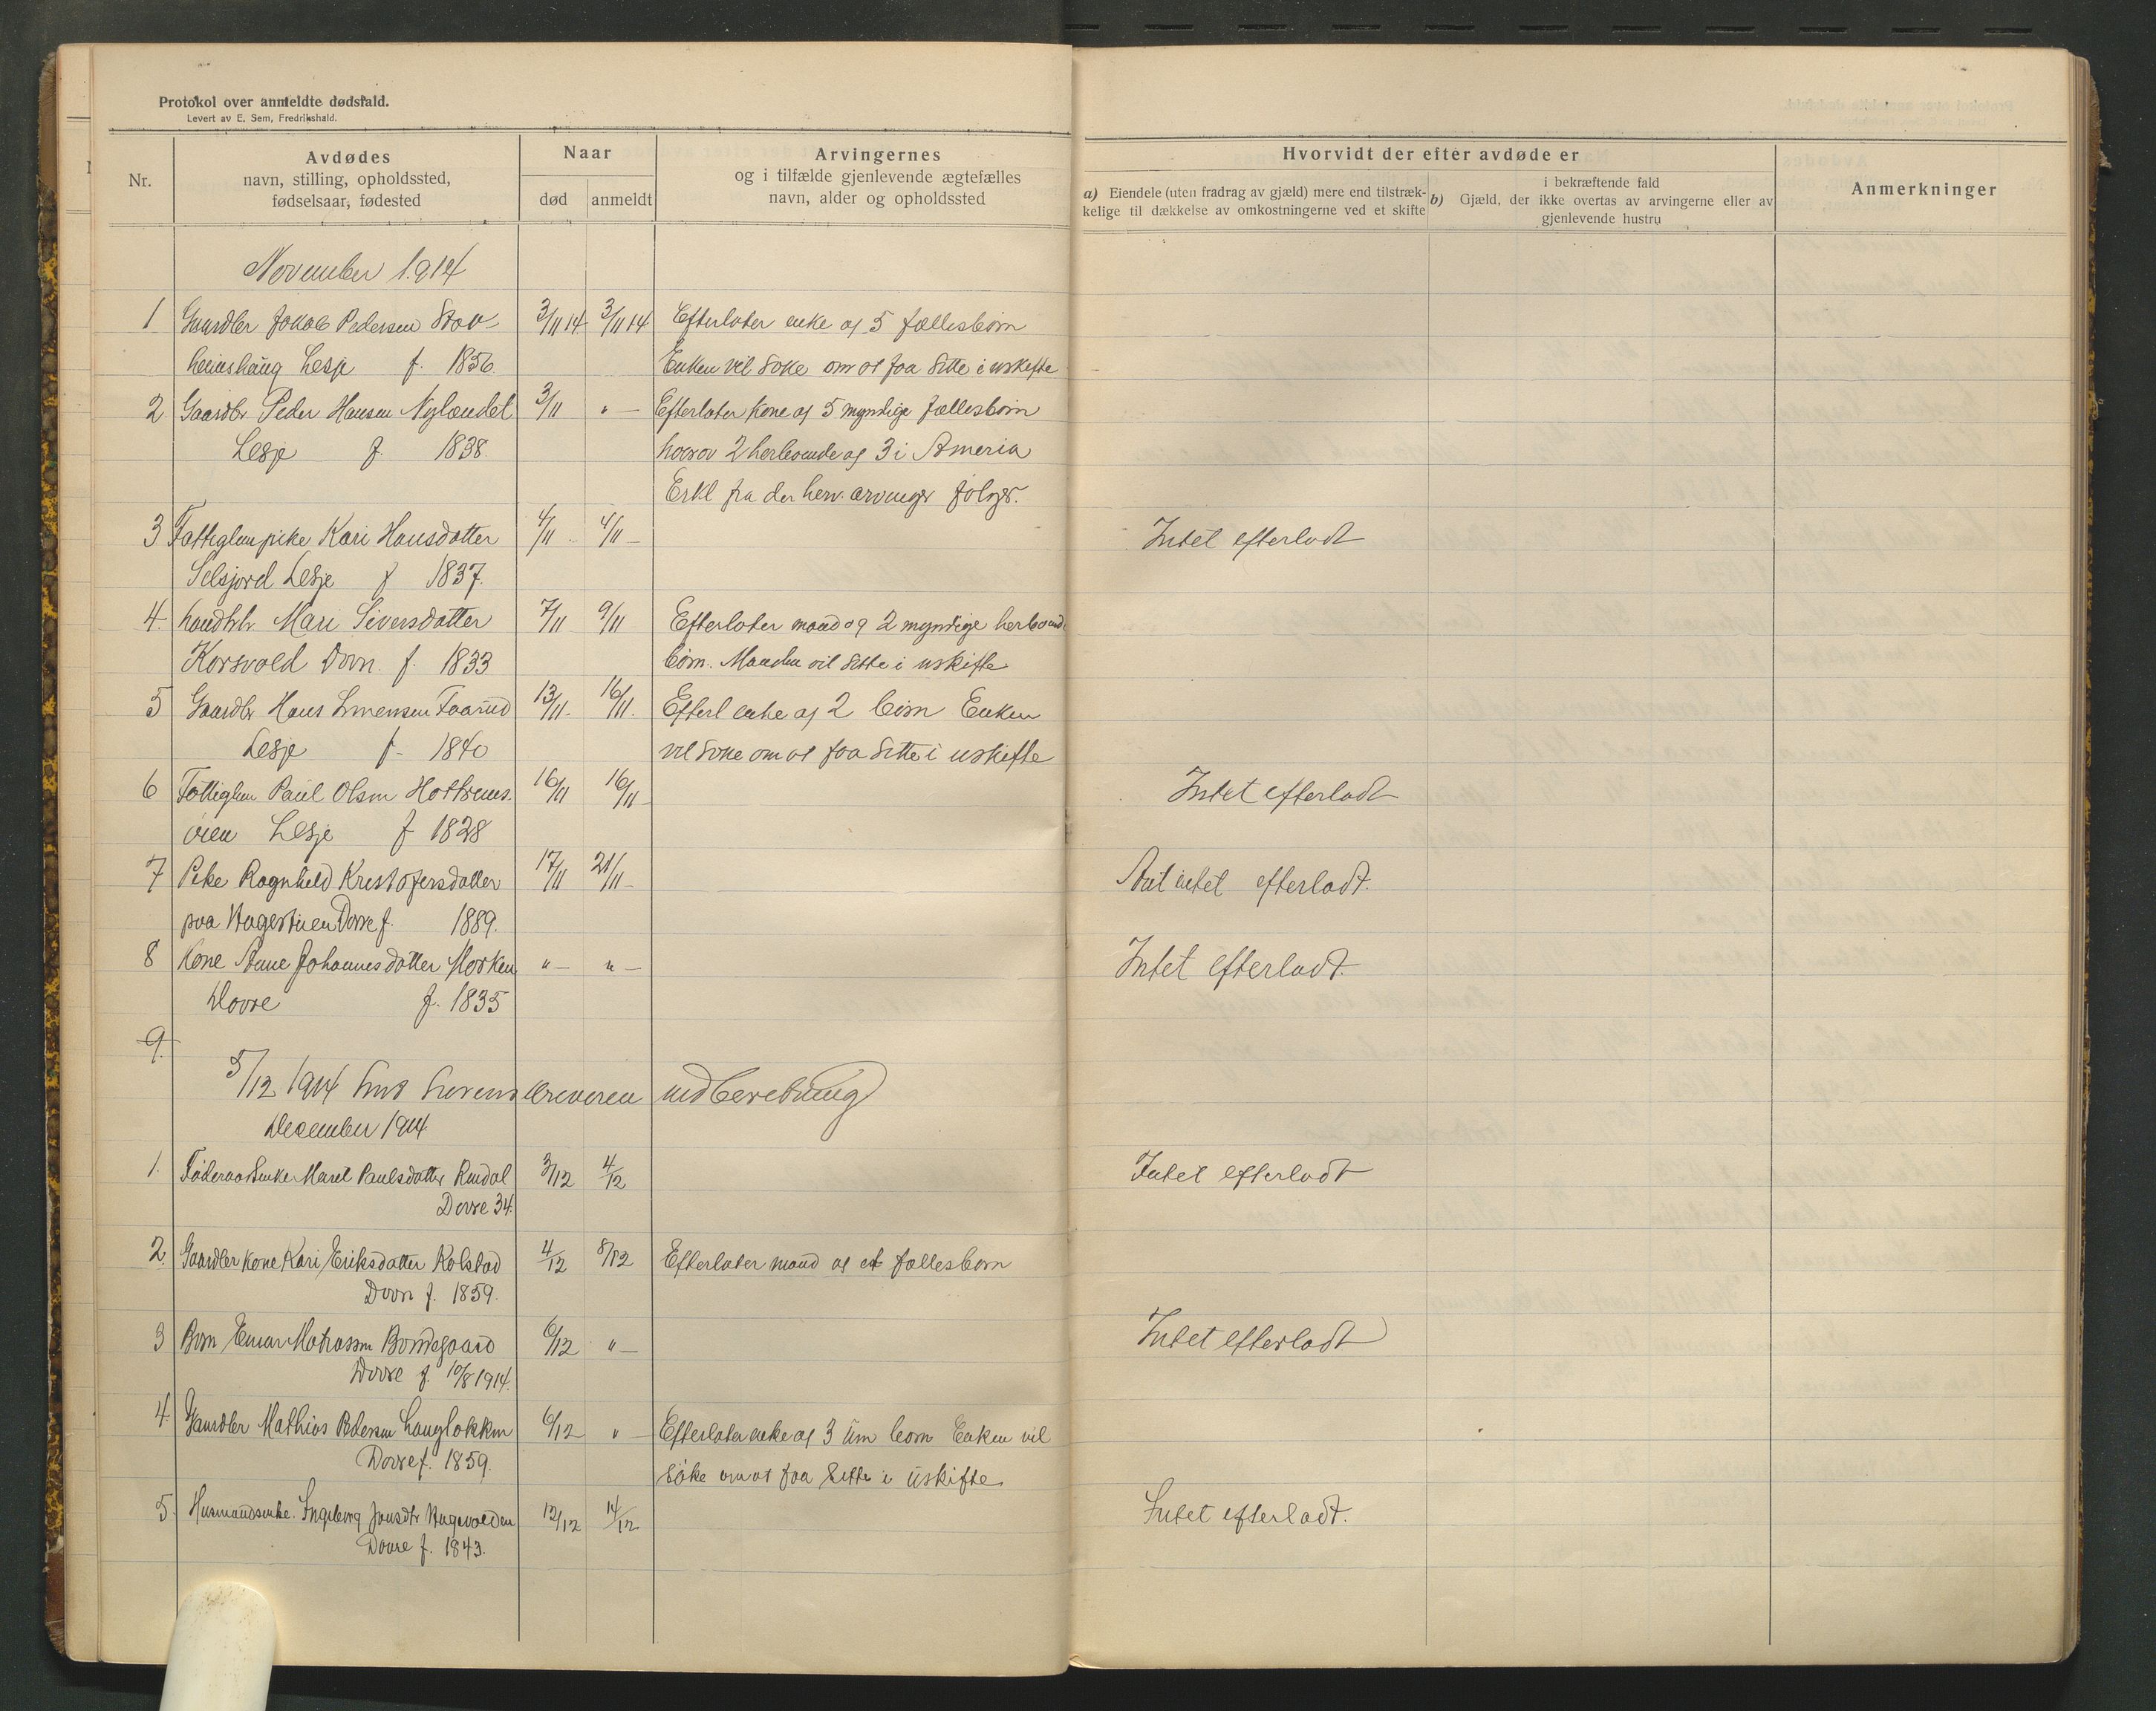 Protokol over anmeldte dødsfald.
Levert av E. Sem, Fredrikshald.
Nr.
Avdødes
navn, stilling, opholdssted,
fødselsaar, fødested
Naar
død
anmeldt
Arvingernes
og i tilfælde gjenlevende ægtefælles
navn, alder og opholdssted
Hvorvidt der efter avdøde er
a) Eiendele (uten fradrag av gjæld) mere end tilstræk-
kelige til dækkelse av omkostningerne ved et skifte
i bekræftende fald
b) Gjæld, der ikke overtas av arvingerne eller av
gjenlevende hustru
Anmerkninger
November 1914
1 Gaardbr Jakob Pedersen 3/11 14 3/11 14 Efterlater enke og 5 fællesbörn
Lesje f. 1856 Enken vil söke om at faa sitte i uskifte
2 Gaardbr. Peder Hansen Nylændet 3/11 " — Efterlater kone og 5 myndige fællesbörn
Lesje f. 1838 hvorav 2 herboende og 3 i Ameria
Erkl fra de herv. arvinger fölger.
3 Fattiglem pike Kari Hansdatter 4/11 - 4/11 — Intet efterladt
Selsjord Lesje f 1837.
4 Mari Siversdatter 7/11 9/11 Efterlater mand og 2 myndige herboende
Korsvold Dovre f. 1833 börn. Manden vil sitte i uskifte
5 Gaardbr Hans Faarud 13/11. 16/11. Efterl enke og 2 börn Enken
Lesje f- 1840 vil söke om at faa sitte i uskifte
6 Fattiglem Paul Olsen 16/11 16/11 — Intet efterladt
öien Lesje f 1828
7 Pike Ragnhild Kristofersdatter 17/11 21/11 — intet efterladt.
paa Dovre f. 1889.
8 Kone Anne Johannesdatter Morken " — " — Intet efterladt.
Dovre f. 1835
9.
5/12 1914 indberetning
December 1914
1. Föderaadsenke Marit Paulsdatter Rindal 3/12 4/12 Intet efterladt
Dovre 34.
2. Gaardbrkone Kari Eriksdatter Kolstad 4/12 8/12 Efterlater mand og et fællesbarn
Dovre f. 1859.
3 Barn Einar Bondegaard 6/12 " — Intet efterladt
Dovre f. 10/8 1914.
4. Gaardbr Mathias Pedersen Langlökken 6/12 " — Efterlater enke og 3 um börn Enken vil
Dovre f. 1859. söke om at faa sitte i uskifte
5. Husmandsenke. Ingeborg Jonsdtr Hagevolden 12/12 14/12 Intet efterladt.
Dovre f. 1843.